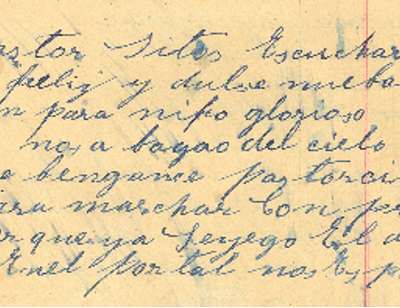 astor Sitos Escuchar
feliz y dulse nueba
n para niño glorioso
nos a bagao del cielo
e bengance pastorci
ara marchar Con pr
or que ya Seyego El d
Enel portal nos Es p